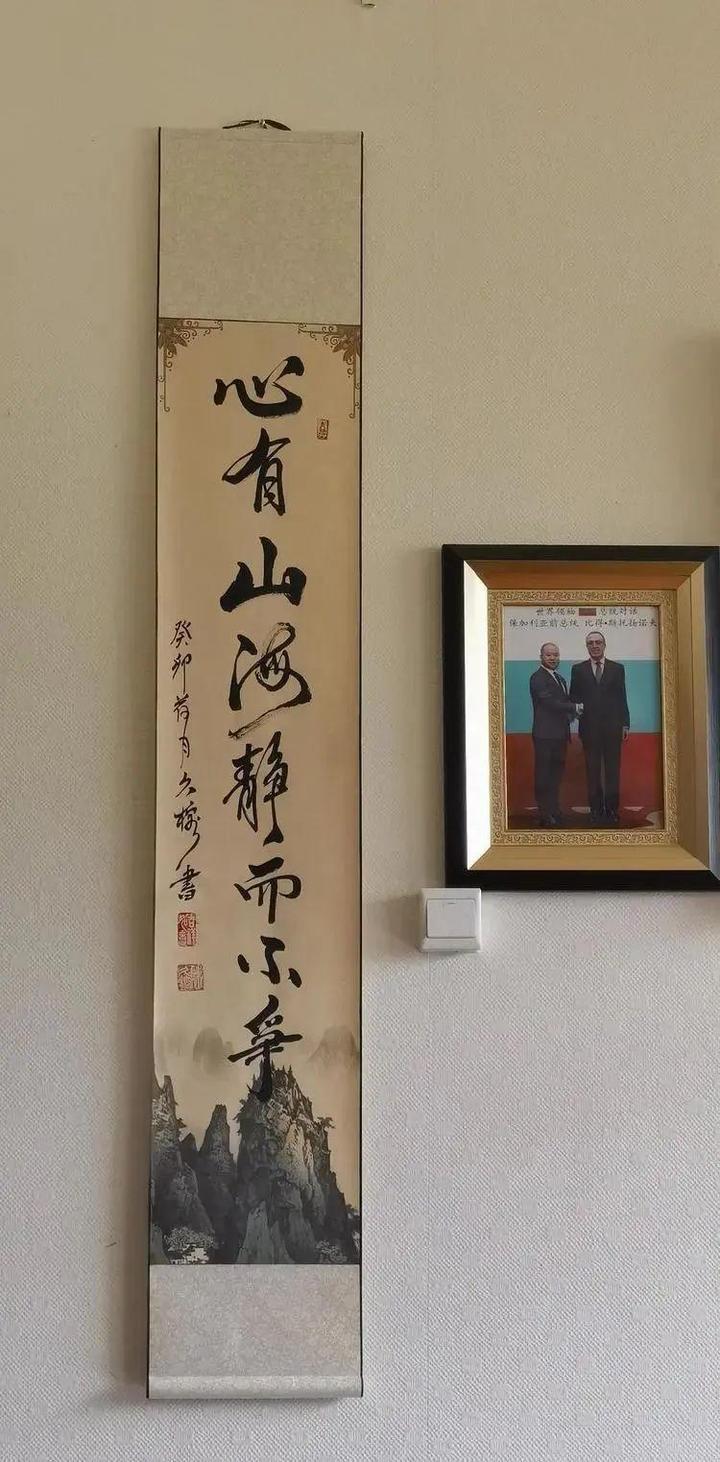 心有山海静而不争
癸卯荷月久樵书
世界领袖 总统对话
保加利亚前总统 比得·斯托扬诺夫